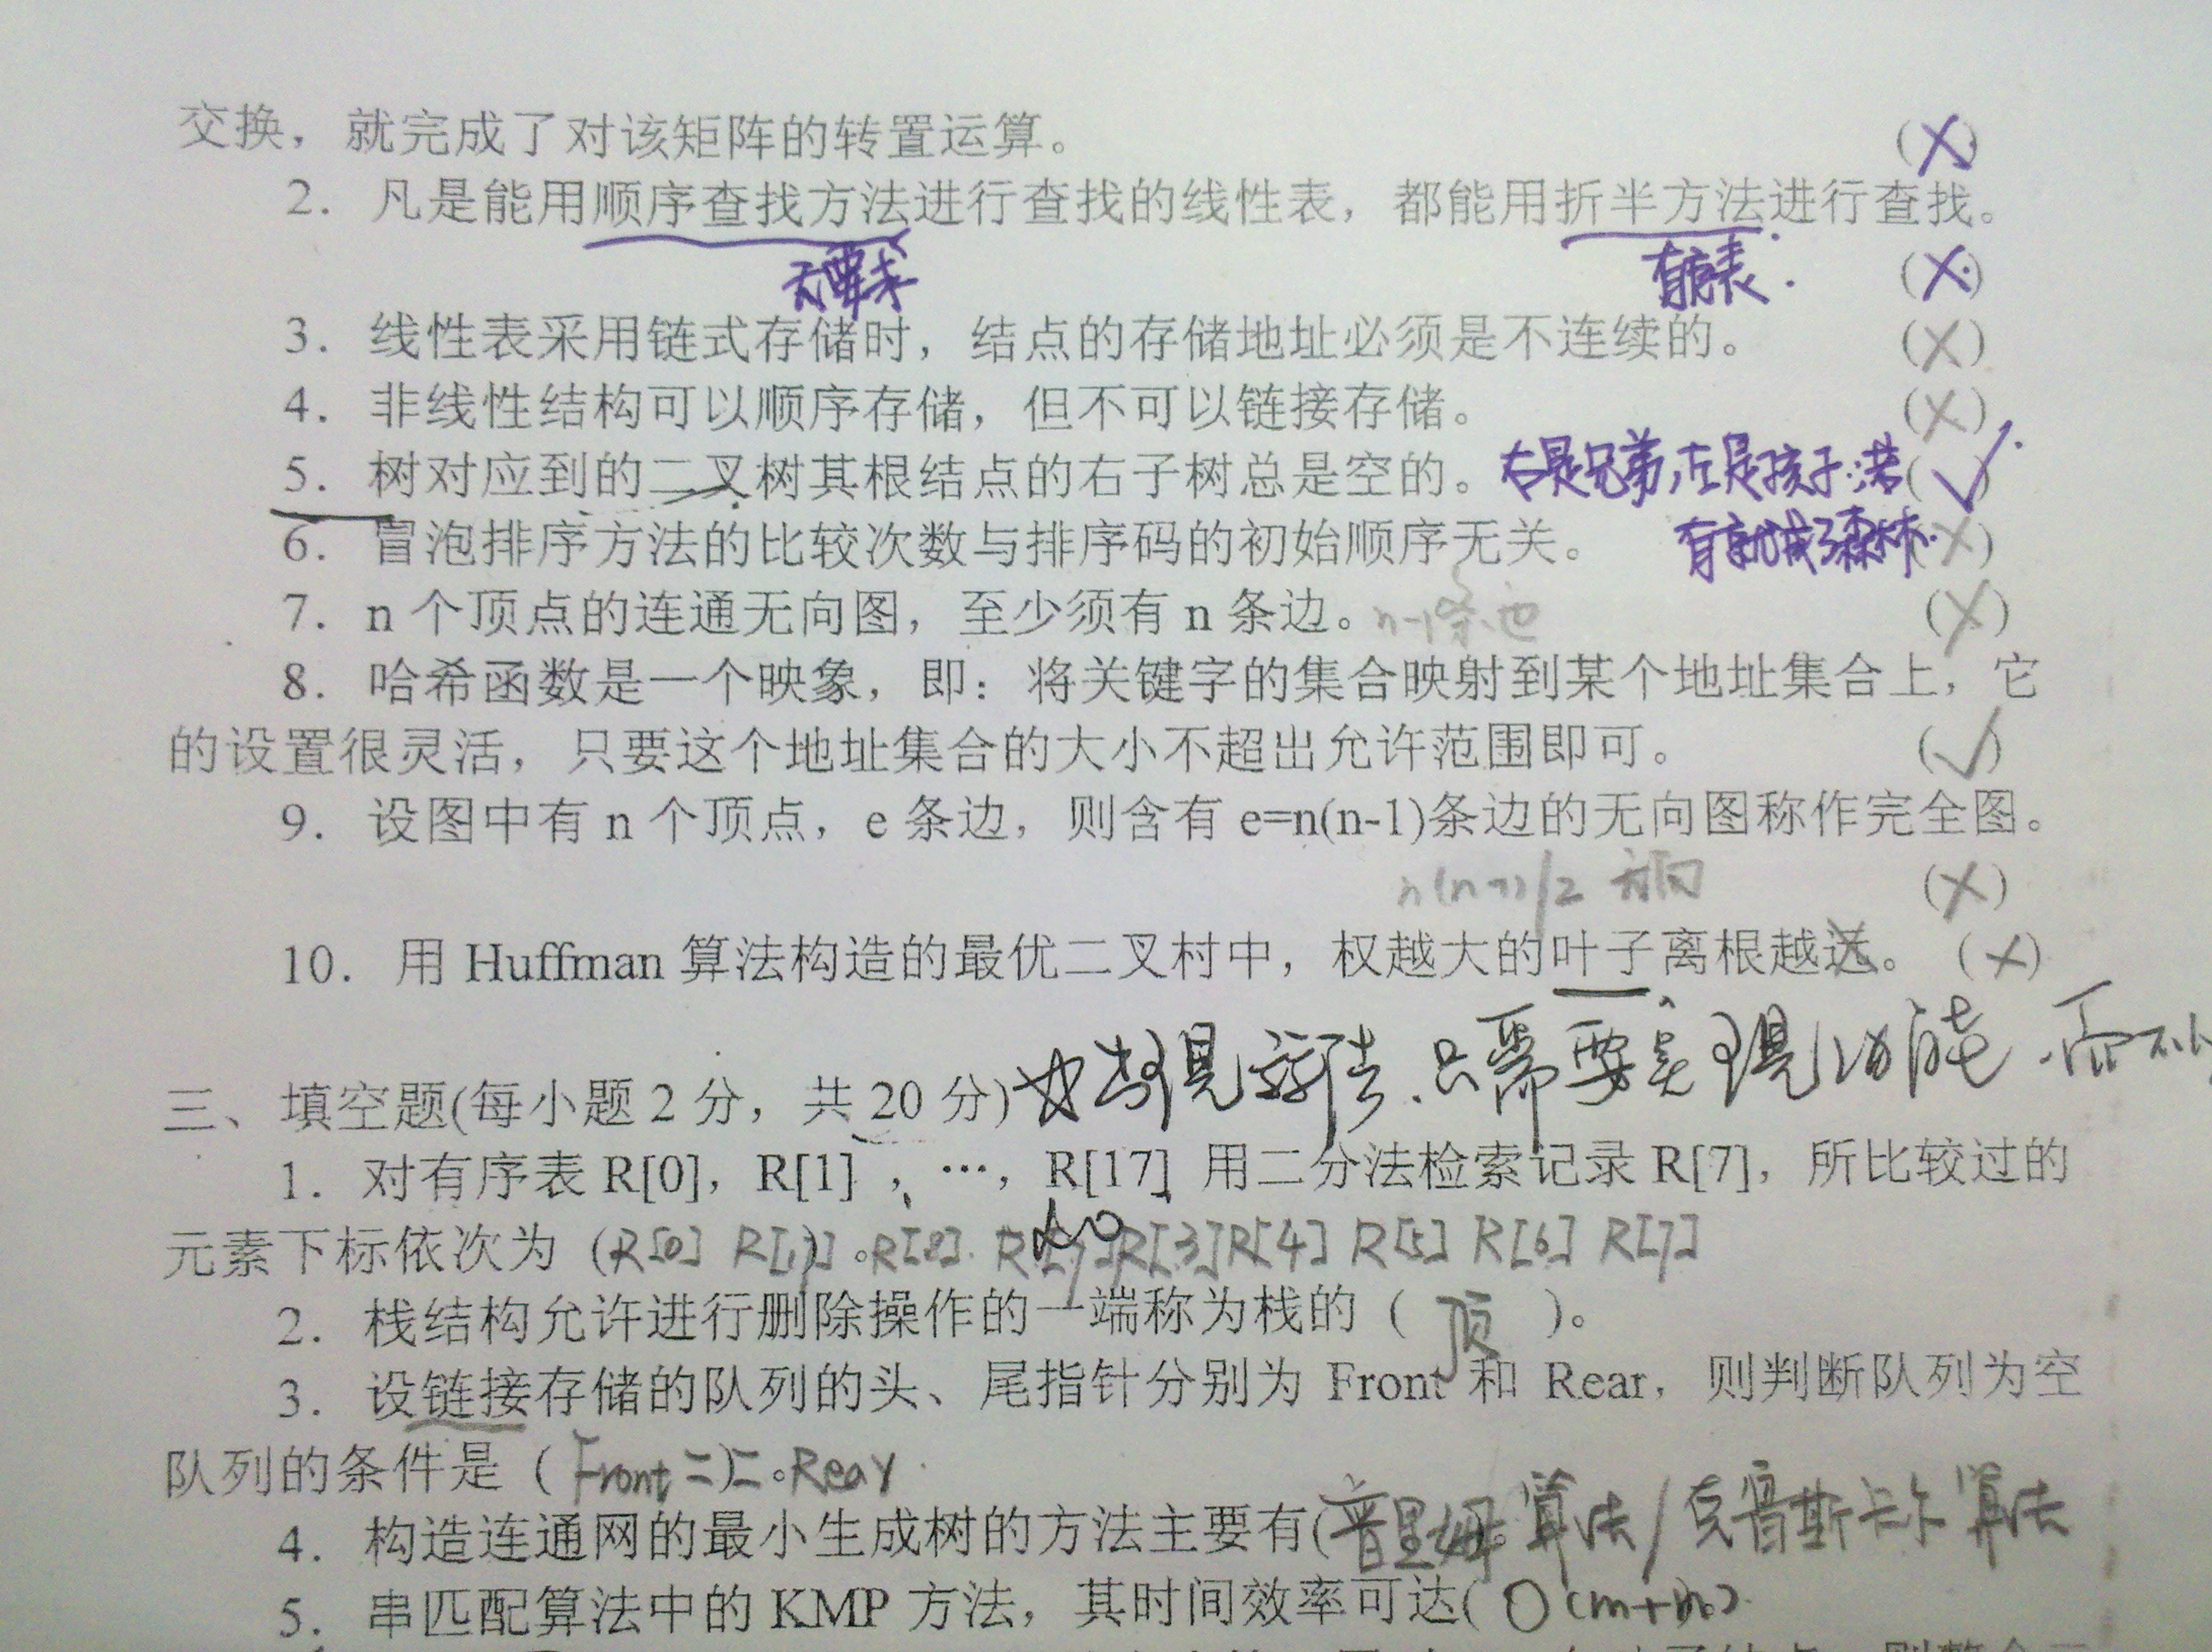 交换，就完成了对该矩阵的转置运算。 (X)
2．凡是能用顺序查找方法进行查找的线性表，都能用折半方法进行查找。
无要求 有序表. (X)
3．线性表采用链式存储时，结点的存储地址必须是不连续的。 (X)
4．非线性结构可以顺序存储，但不可以链接存储。 (X)
5．树对应到的二叉树其根结点的右子树总是空的。 右是兄弟,左是孩子.若 (✓)
有就成了森林.
6．冒泡排序方法的比较次数与排序码的初始顺序无关。 (X)
7．n 个顶点的连通无向图，至少须有 n 条边。 n-1条边 (X)
8．哈希函数是一个映象，即：将关键字的集合映射到某个地址集合上，它
的设置很灵活，只要这个地址集合的大小不超出允许范围即可。 (✓)
9．设图中有 n 个顶点，e 条边，则含有 e=n(n-1)条边的无向图称作完全图。
n(n-1)/2 无向 (X)
10．用 Huffman 算法构造的最优二叉村中，权越大的叶子离根越远。 (X)
只需要实现功能.而不
三、填空题(每小题 2 分，共 20 分)
1．对有序表 R[0]，R[1]，…，R[17] 用二分法检索记录 R[7]，所比较过的
元素下标依次为（R[0] R[1]）。R[2]. R[3] R[4] R[5] R[6] R[7]
2．栈结构允许进行删除操作的一端称为栈的（ 顶 ）。
3．设链接存储的队列的头、尾指针分别为 Front 和 Rear，则判断队列为空
队列的条件是（Front ==）。Rear
4．构造连通网的最小生成树的方法主要有(普里姆算法/克鲁斯卡尔算法
5．串匹配算法中的 KMP 方法，其时间效率可达( O(m+n)